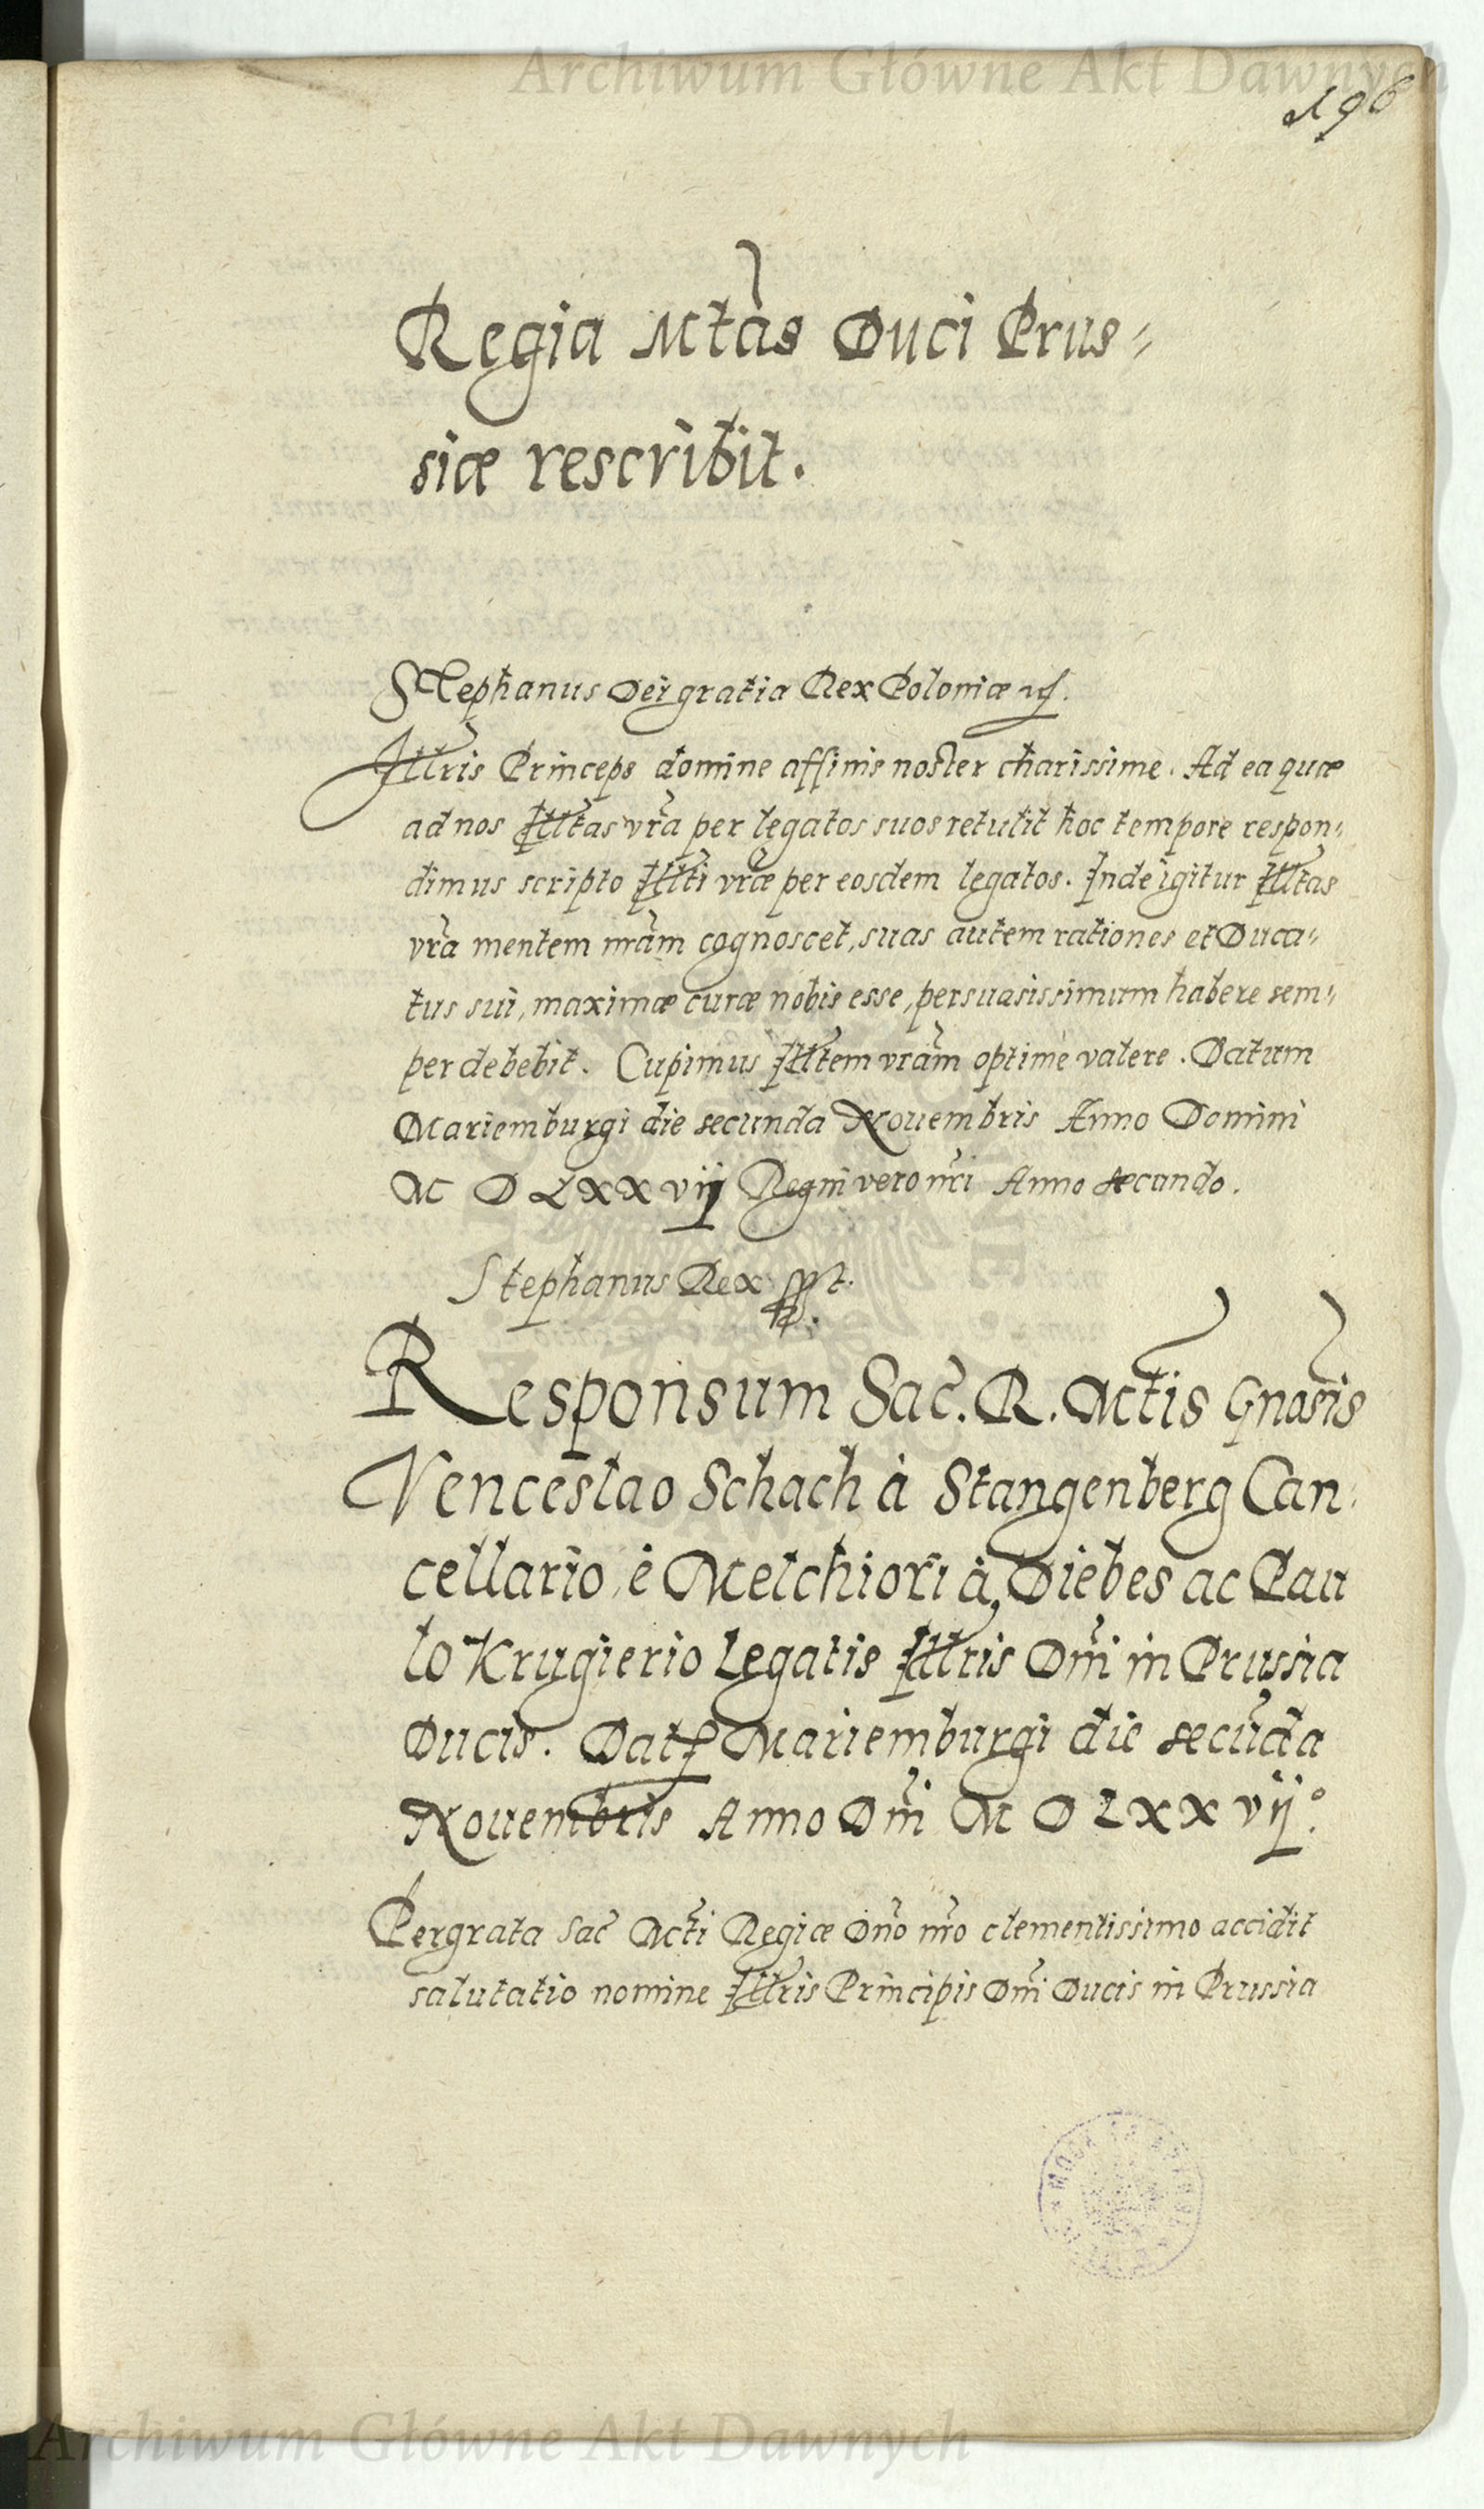 Archiwum Główne Akt Dawnych
196
Regia Mtas Duci Prus=
siæ rescribit.
Stephanus Dei gratia Rex Poloniæ
Illris Princeps domine affinis noster charissime. Ad ea quæ
ad nos Illtas vra per legatos suos retulit hoc tempore respon=
dimus scripto Illti vræ per eosdem legatos. Inde igitur Illtas
vra mentem nram cognoscet, suas autem rationes et Duca=
tus sui, maximæ curæ nobis esse, persuasissimum habere sem=
per debebit. Cupimus Illtem vram optime valere. Datum
Mariemburgi die secunda Nouembris Anno Domini
M D LXX vij Regni vero nri Anno secundo.
Stephanus Rex
Responsum Sac. R. Mtis Gnosis
Venceslao Schach à Stangenberg Can=
cellario, è Melchiori à Diebes ac Pau
lo Krugierio Legatis Illris Dni in Prussia
Ducis. Dat Mariemburgi die secuda
Nouembris Anno Dni M D LXX vij°.
Pergrata Sac Mti Regiæ Dno nro clementissimo accidit
salutatio nomine Illris Principis Dni Ducis in Prussia
Archiwum Główne Akt Dawnych